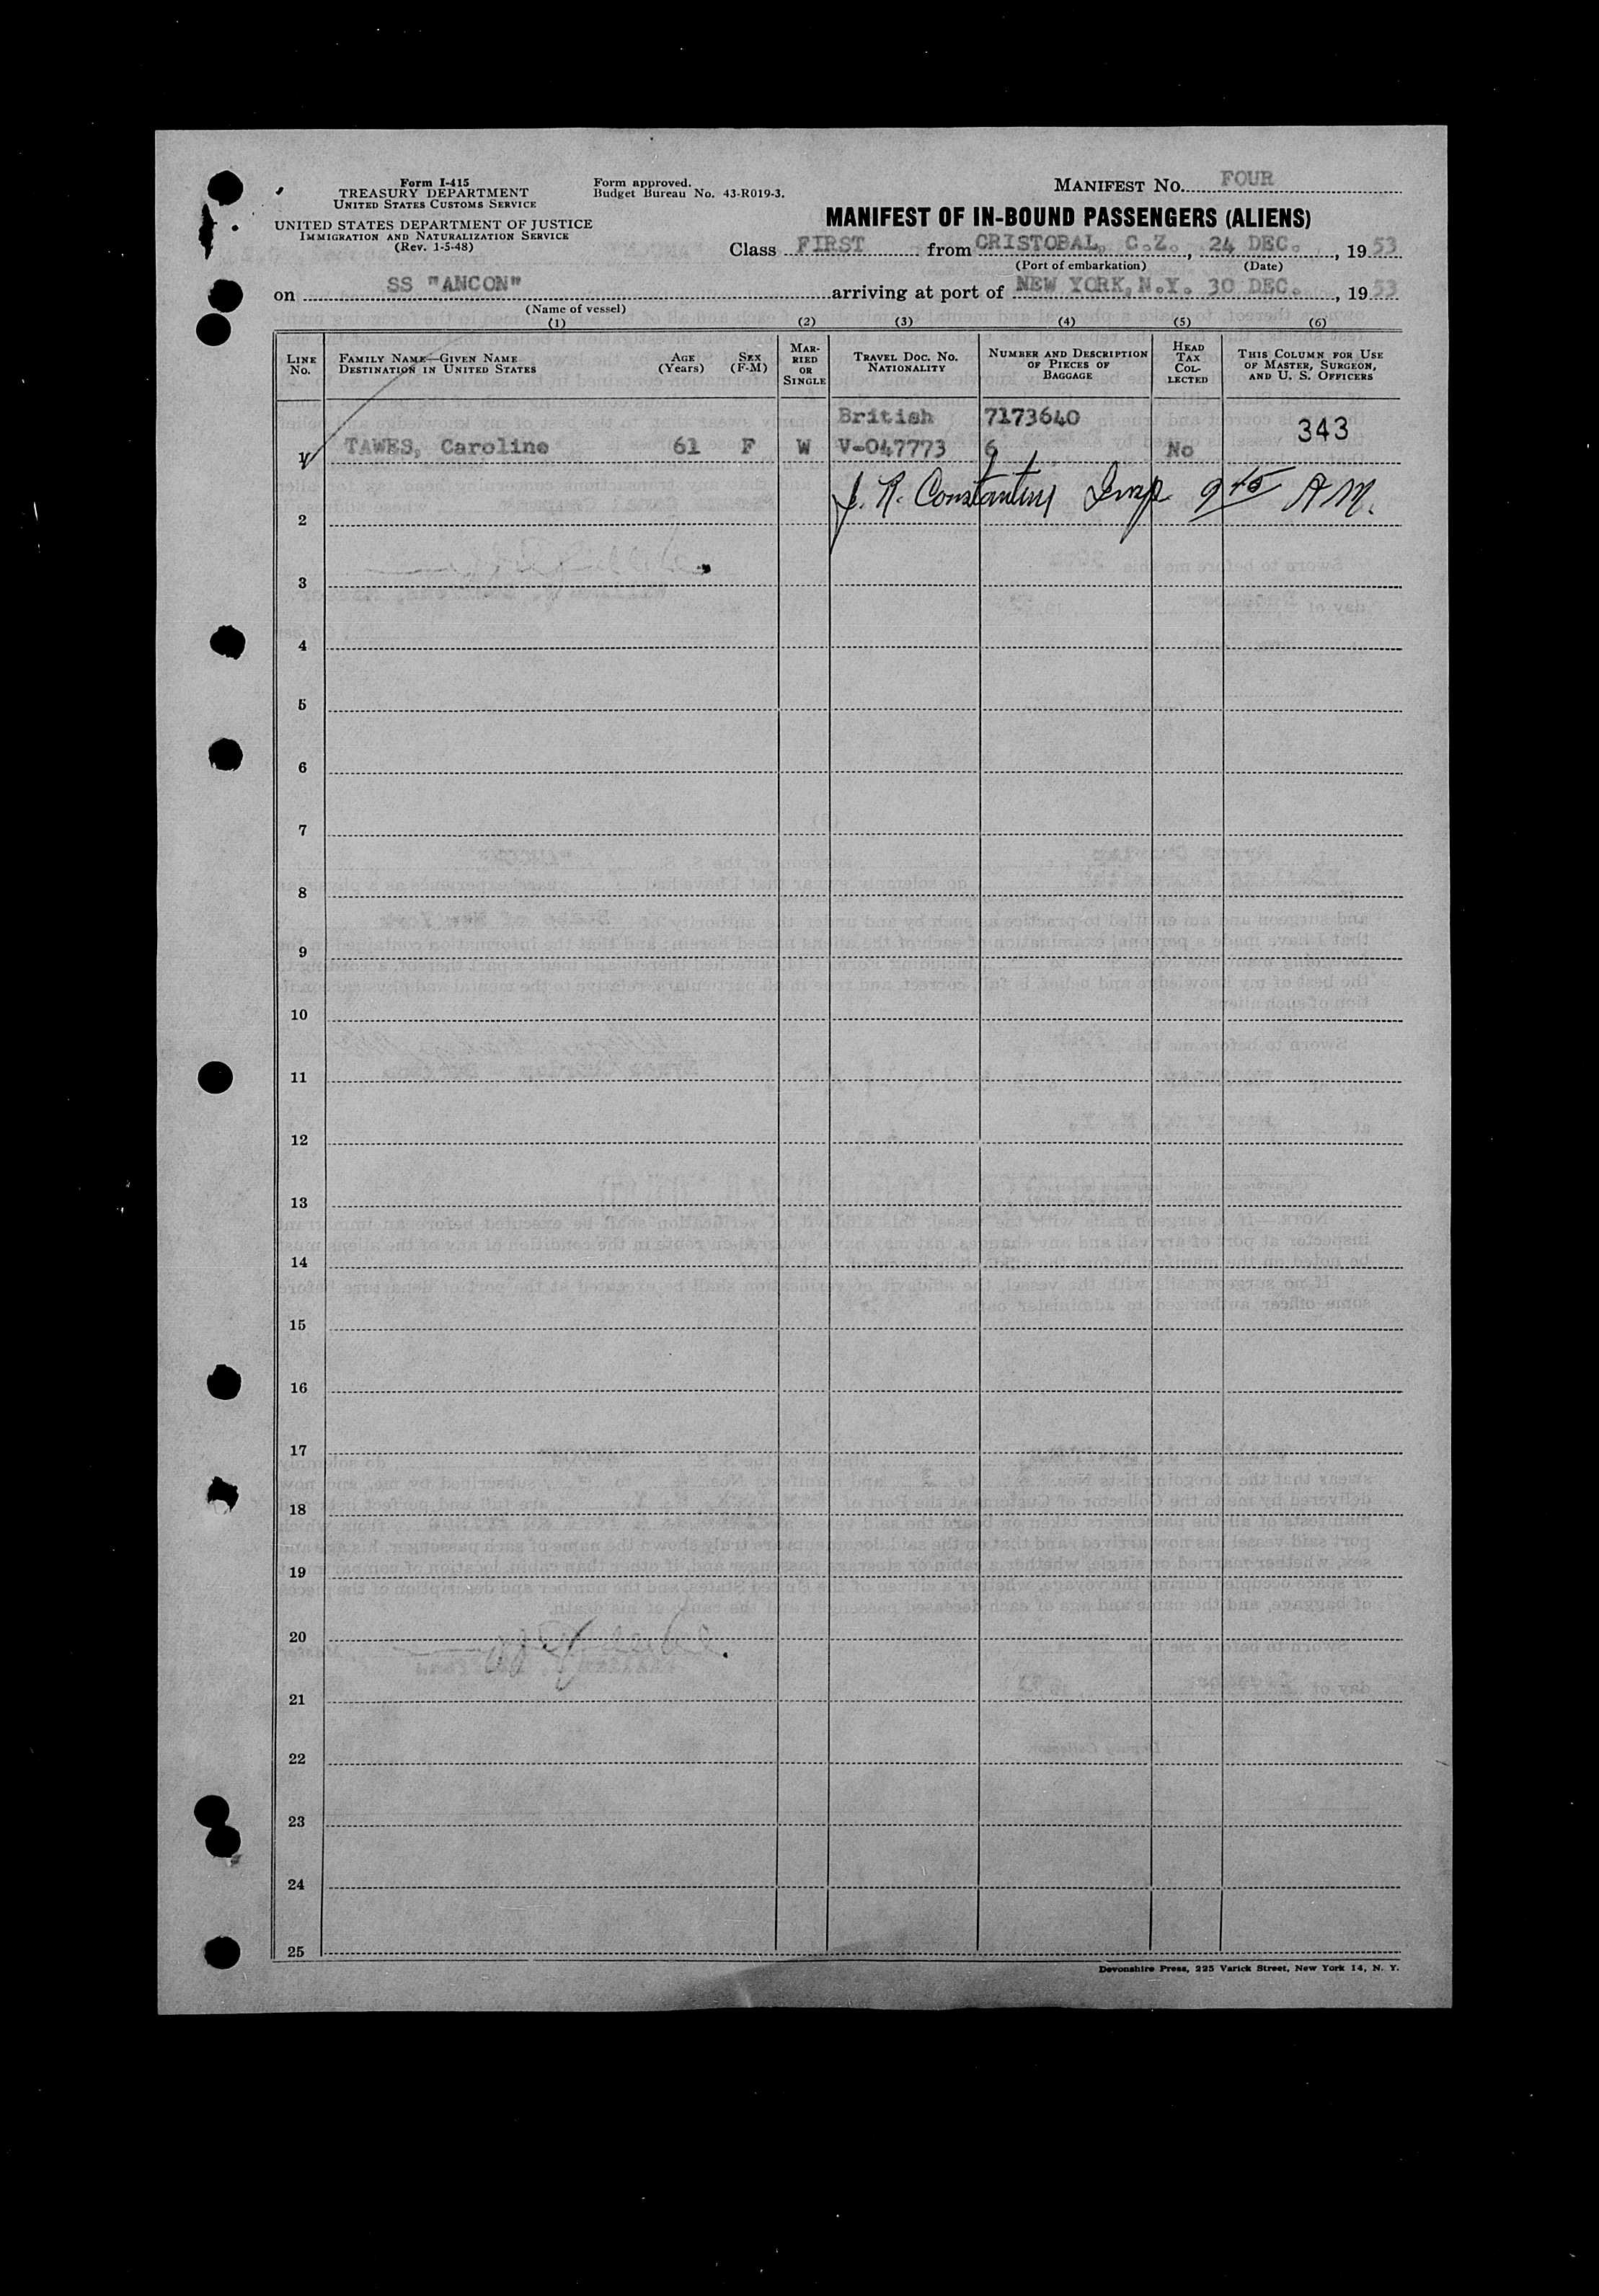 Form I-415
TREASURY DEPARTMENT
UNITED STATES CUSTOMS SERVICE
UNITED STATES DEPARTMENT OF JUSTICE
IMMIGRATION AND NATURALIZATION SERVICE
(Rev. 1-5-48)
Form approved.
Budget Bureau No. 43-R019-3.
MANIFEST NO. FOUR
MANIFEST OF IN-BOUND PASSENGERS (ALIENS)
Class FIRST from CRISTOBAL, C.Z., 24 DEC., 1953
(Port of embarkation) (Date)
on SS "ANCON" arriving at port of NEW YORK, N.Y. 30 DEC., 1953
(Name of vessel)
(1) (2) (3) (4) (5) (6)
LINE NO.
FAMILY NAME—GIVEN NAME
DESTINATION IN UNITED STATES
AGE (Years)
SEX (F-M)
MARRIED OR SINGLE
TRAVEL DOC. NO. NATIONALITY
NUMBER AND DESCRIPTION OF PIECES OF BAGGAGE
HEAD TAX COLLECTED
THIS COLUMN FOR USE OF MASTER, SURGEON, AND U. S. OFFICERS
British 7173640
1 TAWES, Caroline 61 F W V-047773 6 No 343
2 Insp 9 45 AM.
3
4
5
6
7
8
9
10
11
12
13
14
15
16
17
18
19
20
21
22
23
24
25
Devonshire Press, 225 Varick Street, New York 14, N. Y.